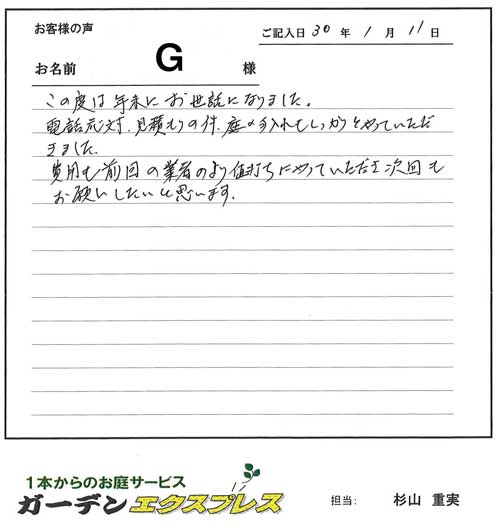 お客様の声
ご記入日 30 年 1 月 11 日
お名前 G 様
この度は年末にお世話になりました。
電話応対、見積もりの件、庭の手入れもしっかりとやっていただ
きました。
費用も前回の業者のより値打ちにやっていただき次回も
お願いしたいと思います。
1本からのお庭サービス
ガーデンエクスプレス
担当: 杉山 重実